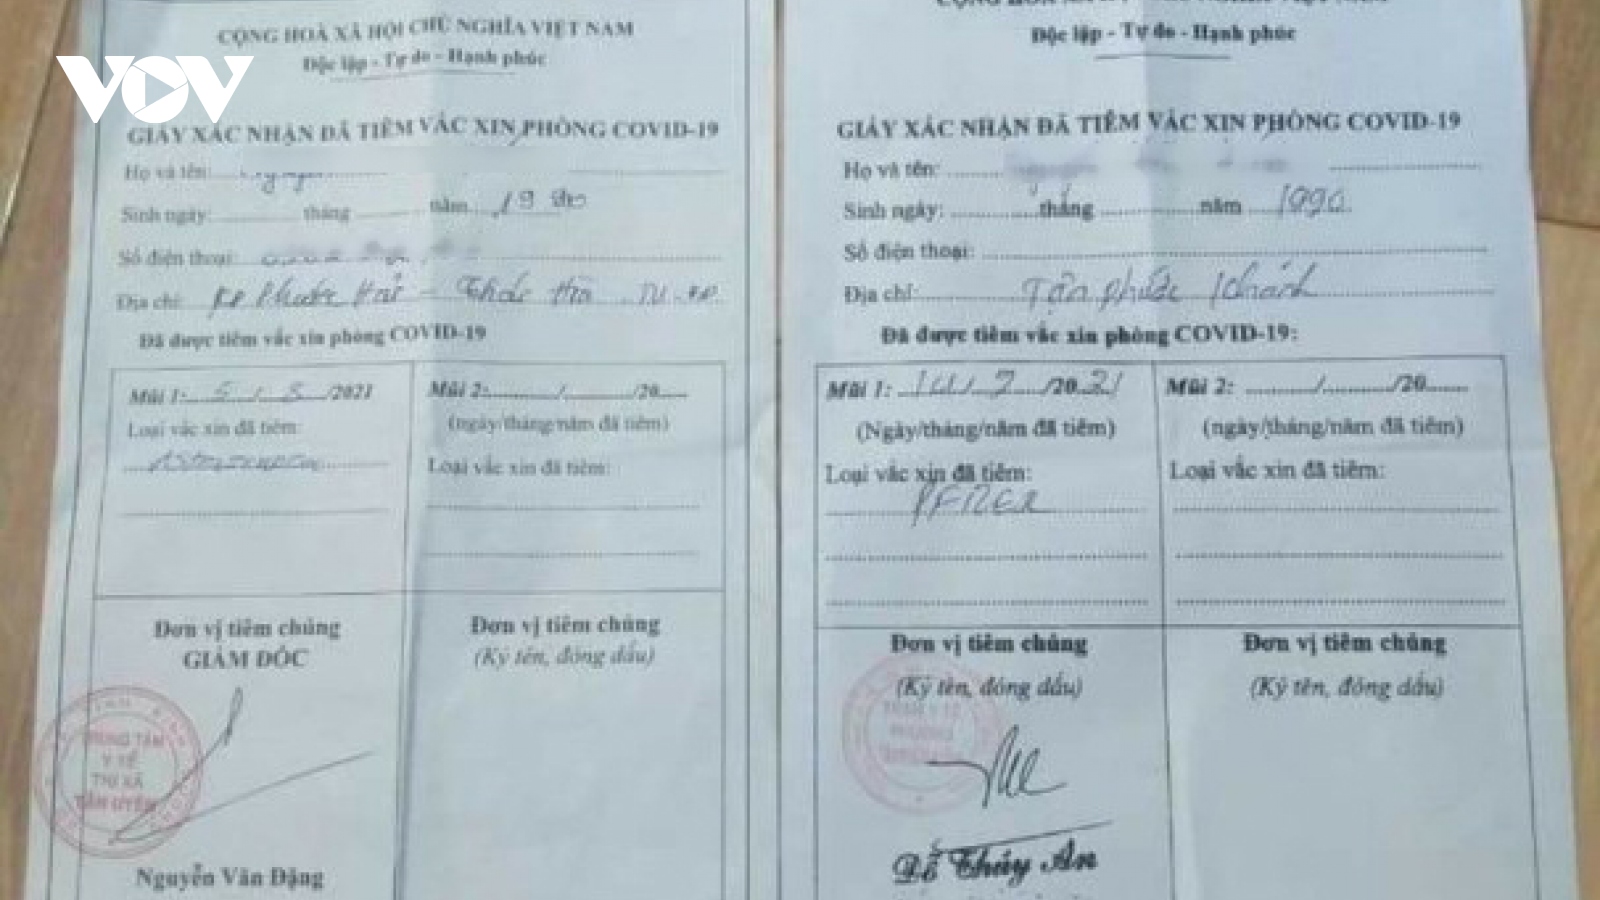 VOV
CỘNG HOÀ XÃ HỘI CHỦ NGHĨA VIỆT NAM
Độc lập - Tự do - Hạnh phúc
GIẤY XÁC NHẬN ĐÃ TIÊM VẮC XIN PHÒNG COVID-19
Họ và tên:
Sinh ngày: tháng năm 19
Số điện thoại:
Địa chỉ: KP Phước Hải - Thái Hòa TU
Đã được tiêm vắc xin phòng COVID-19
Mũi 1: 5/8/2021
Loại vắc xin đã tiêm:
Mũi 2: / /20
(ngày/tháng/năm đã tiêm)
Loại vắc xin đã tiêm:
Đơn vị tiêm chủng
GIÁM ĐỐC
TRUNG TÂM
Y TẾ
THỊ XÃ
TÂN UYÊN
Nguyễn Văn Đặng
Đơn vị tiêm chủng
(Ký tên, đóng dấu)
Độc lập - Tự do - Hạnh phúc
GIẤY XÁC NHẬN ĐÃ TIÊM VẮC XIN PHÒNG COVID-19
Họ và tên:
Sinh ngày: tháng năm 1990
Số điện thoại:
Địa chỉ: Tân Phước Khánh
Đã được tiêm vắc xin phòng COVID-19:
Mũi 1: /7/2021
(Ngày/tháng/năm đã tiêm)
Loại vắc xin đã tiêm:
PFIZER
Mũi 2: / /20
(ngày/tháng/năm đã tiêm)
Loại vắc xin đã tiêm:
Đơn vị tiêm chủng
(Ký tên, đóng dấu)
TRẠM Y TẾ
PHƯỜNG
Đỗ Thúy An
Đơn vị tiêm chủng
(Ký tên, đóng dấu)